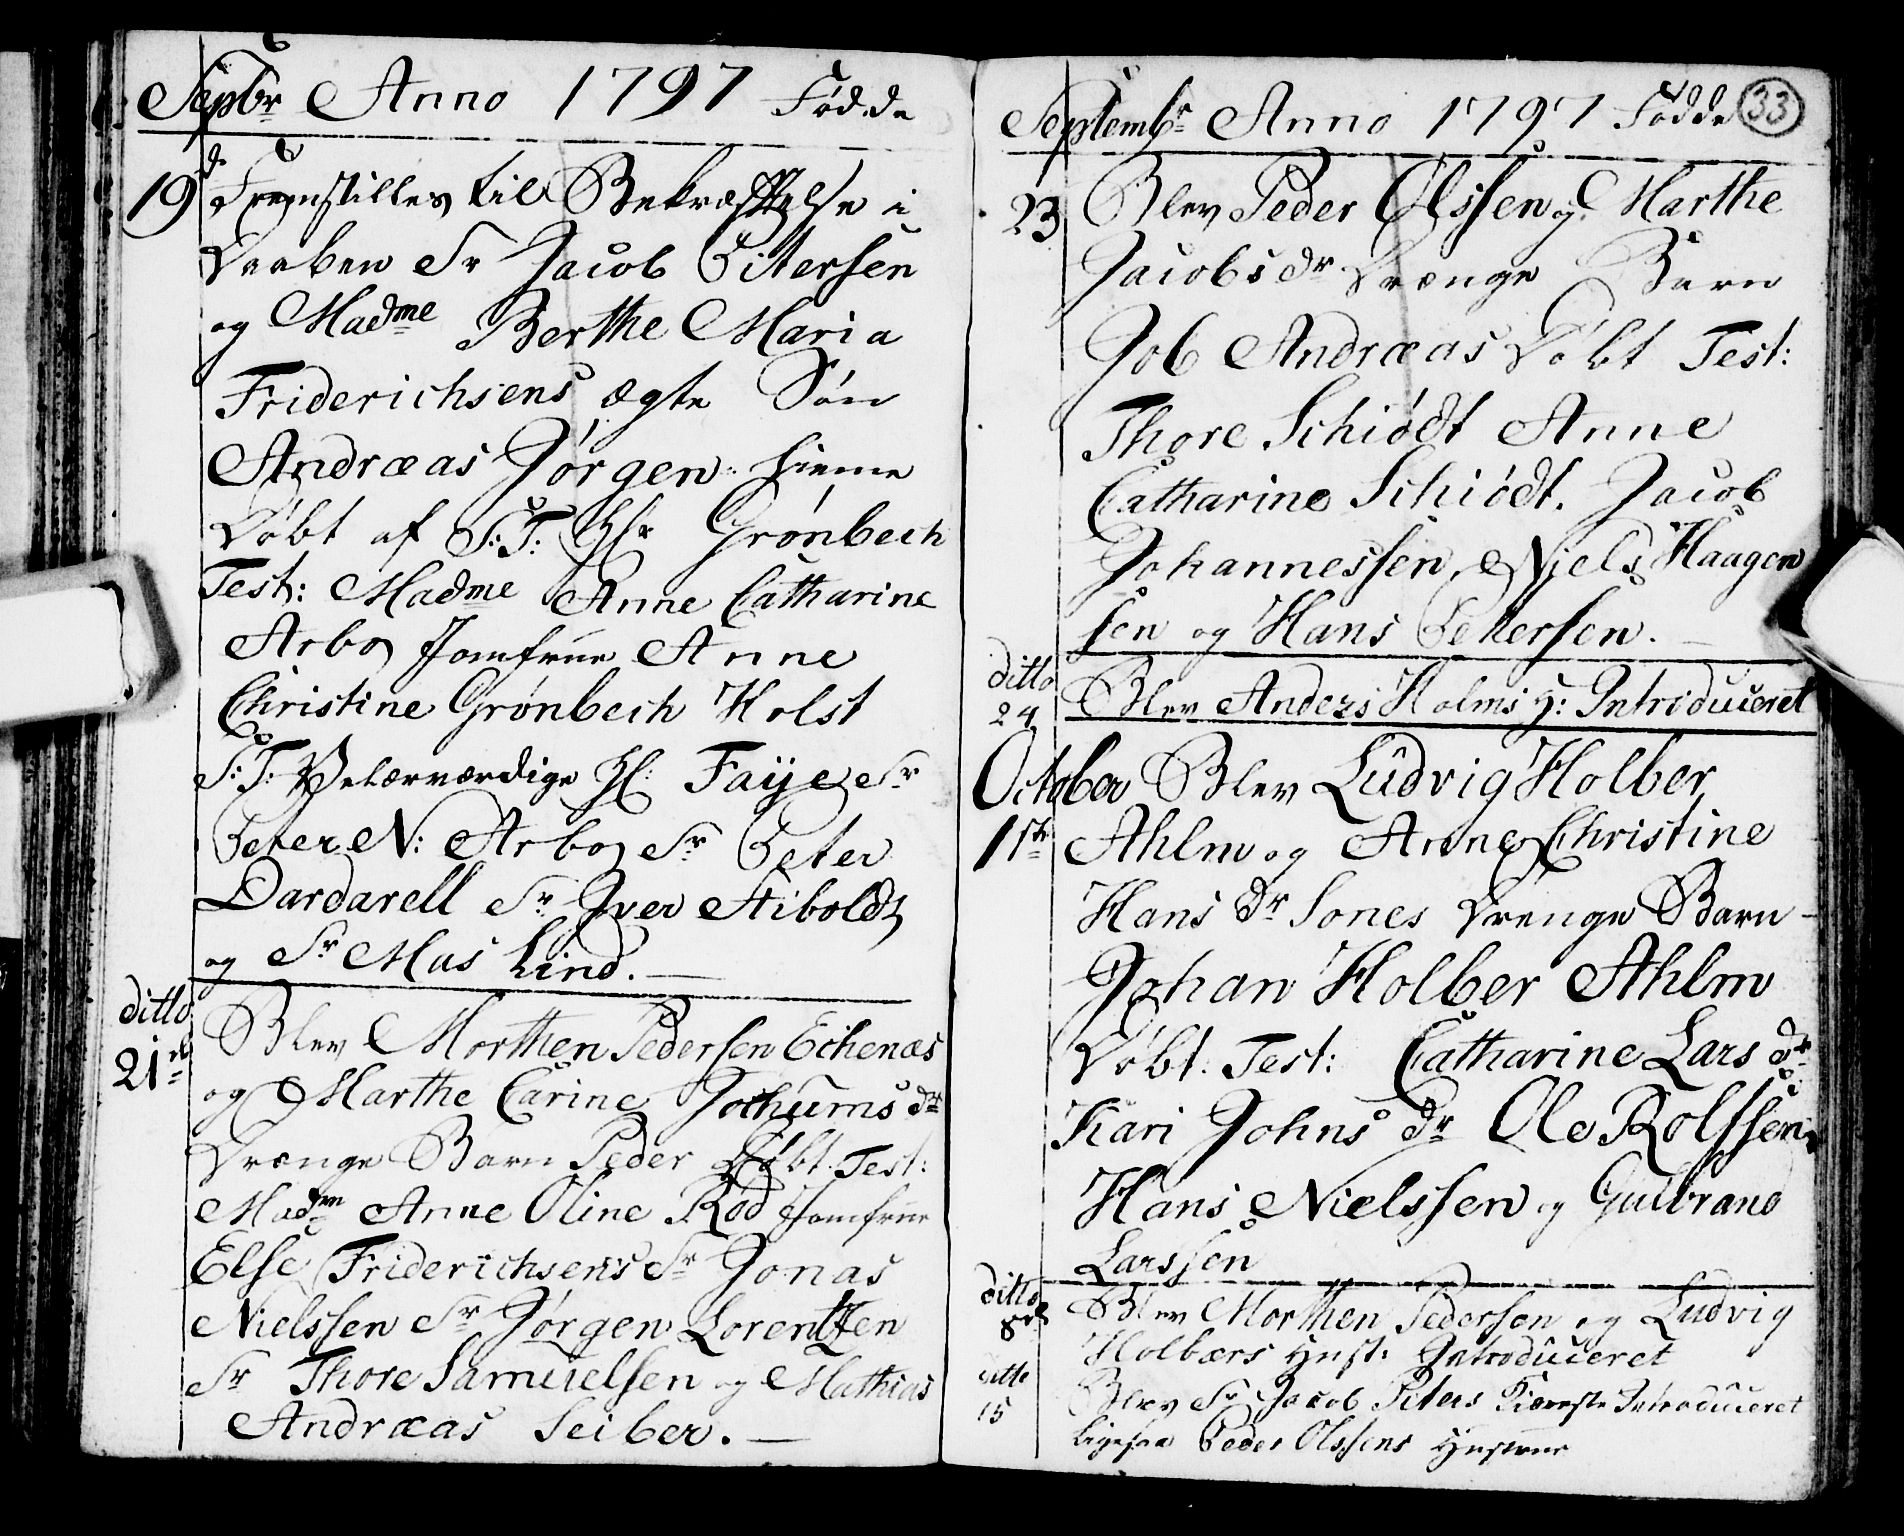 Sepbr Anno 1797 Fødde
19 d. Fremstilles til Bekræftelse i
Daaben Sr Jacob Pitersen
og Madme Berthe Maria
Friderichsens ægte Søn
Andræas Jørgen hieme
Døbt af S: T: Hr Grønbech
Test: Madme Anne Catharine
Arbo, Jomfrue Anne
Christine Grønbech Holst
S: T: Velærværdige H: Faye, Sr
Peter N: Arbo, Sr Peter
Dardarell Sr Iver Stiboldt
og Sr Mas Lind. —
ditto
21de
Blev Morthen Pedersen Echenæs
og Marthe Carine Jochums dr
Drænge Barn Peder Døbt. Test:
Madme Anne Oline Rod Jomfrue
Else Friderichsens Sr Jonas
Nielssen Sr Jørgen Lorentzen
Sr Thore Samuelsen og Mathias
Andræas Seiber. —
Septembr Anno 1797 Fødde 33
23 Blev Peder Olssen og Marthe
Jacobs dr Drænge Barn
Job Andræas Døbt Test:
Thore Schiødt Anne
Catharine Schiødt. Jacob
Johannessen, Niels Haagen
sen og Hans Petersen. —
ditto
24 Blev Anders Holms H: Introduceret
October Blev Ludvig Holber
1ste Ahlm og Anne Christine
Hans dr Sones Drenge Barn
Johan Holber Ahlm
Døbt. Test: Catharine Lars dr
Kari Johns dr Ole Rolfsen
Hans Nielssen og Gulbrand
Larssen
ditto
8de Blev Morthen Pedersen og Ludvig
Holbærs Hust: Introduceret
ditto
15 Blev Sr Jacob Piters Kiæreste Introduceret
ligesaa Peder Olssens Hustrue